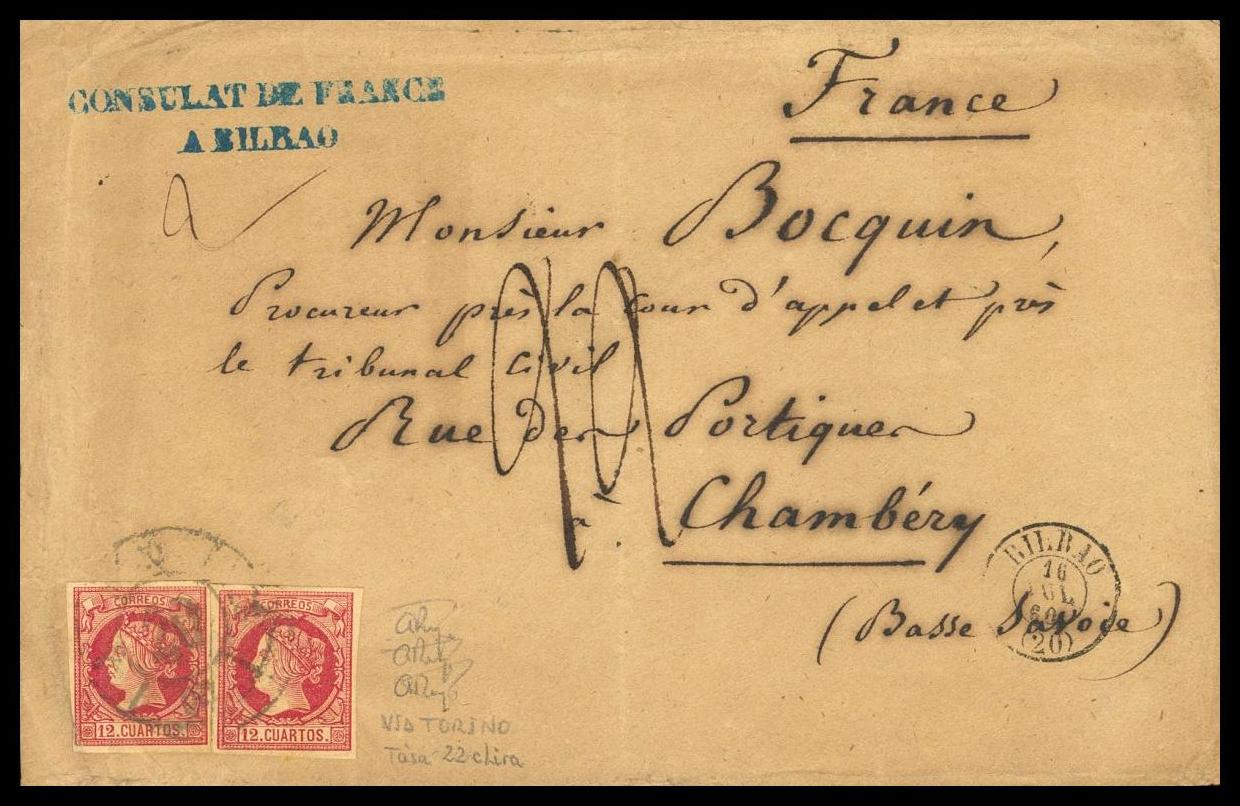 CONSULAT DE FRANCE
A BILBAO
France
Monsieur Bocquin,
Procureur près la Cour d'appel et près
le tribunal Civil
Rue des Portiques
à Chambéry
(Basse Savoie)
BILBAO
16
JUL
60
(20)
CORREOS
12. CUARTOS.
CORREOS
12. CUARTOS.
VIA TORINO
Tasa 22